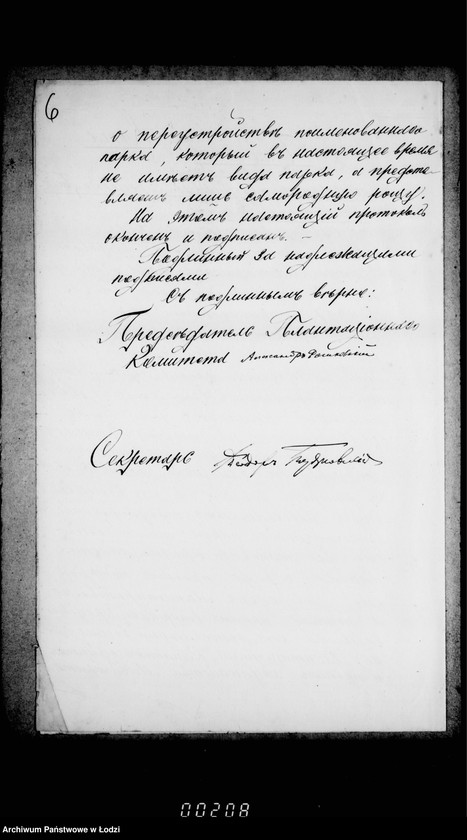 6
о переустройствѣ поименованнаго
парка, который въ настоящее время
не имѣетъ вида парка, а предста-
вляетъ лишь самородную рощу.
На этомъ настоящій протоколъ
оконченъ и подписанъ. —
Подлинный за надлежащими
подписями
Съ подлиннымъ вѣрно:
Предсѣдатель Плантаціоннаго
Комитета Александръ
Секретарь
Archiwum Państwowe w Łodzi
00208